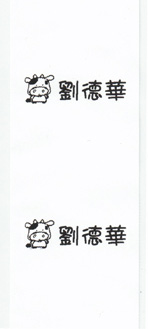 劉德華
劉德華